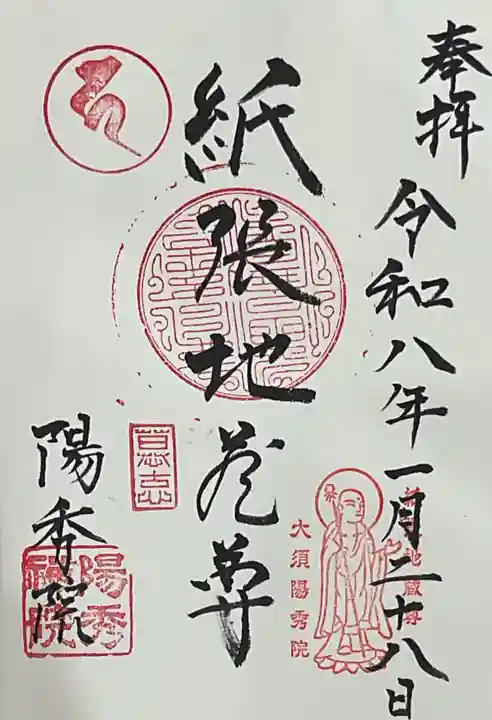 奉拝 令和八年一月二十八日
紙張地蔵尊
陽秀院
大須陽秀院
陽秀禅院